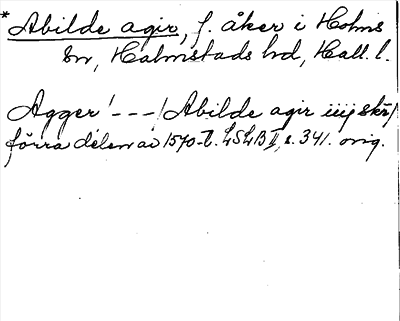 * Abilde agir, f. åker i Holms
sn, Halmstads hd, Hall. l.
Agger /---/ Abilde agir iiij skr/
förra delen av 1570-t. LSLB II, s. 341. orig.